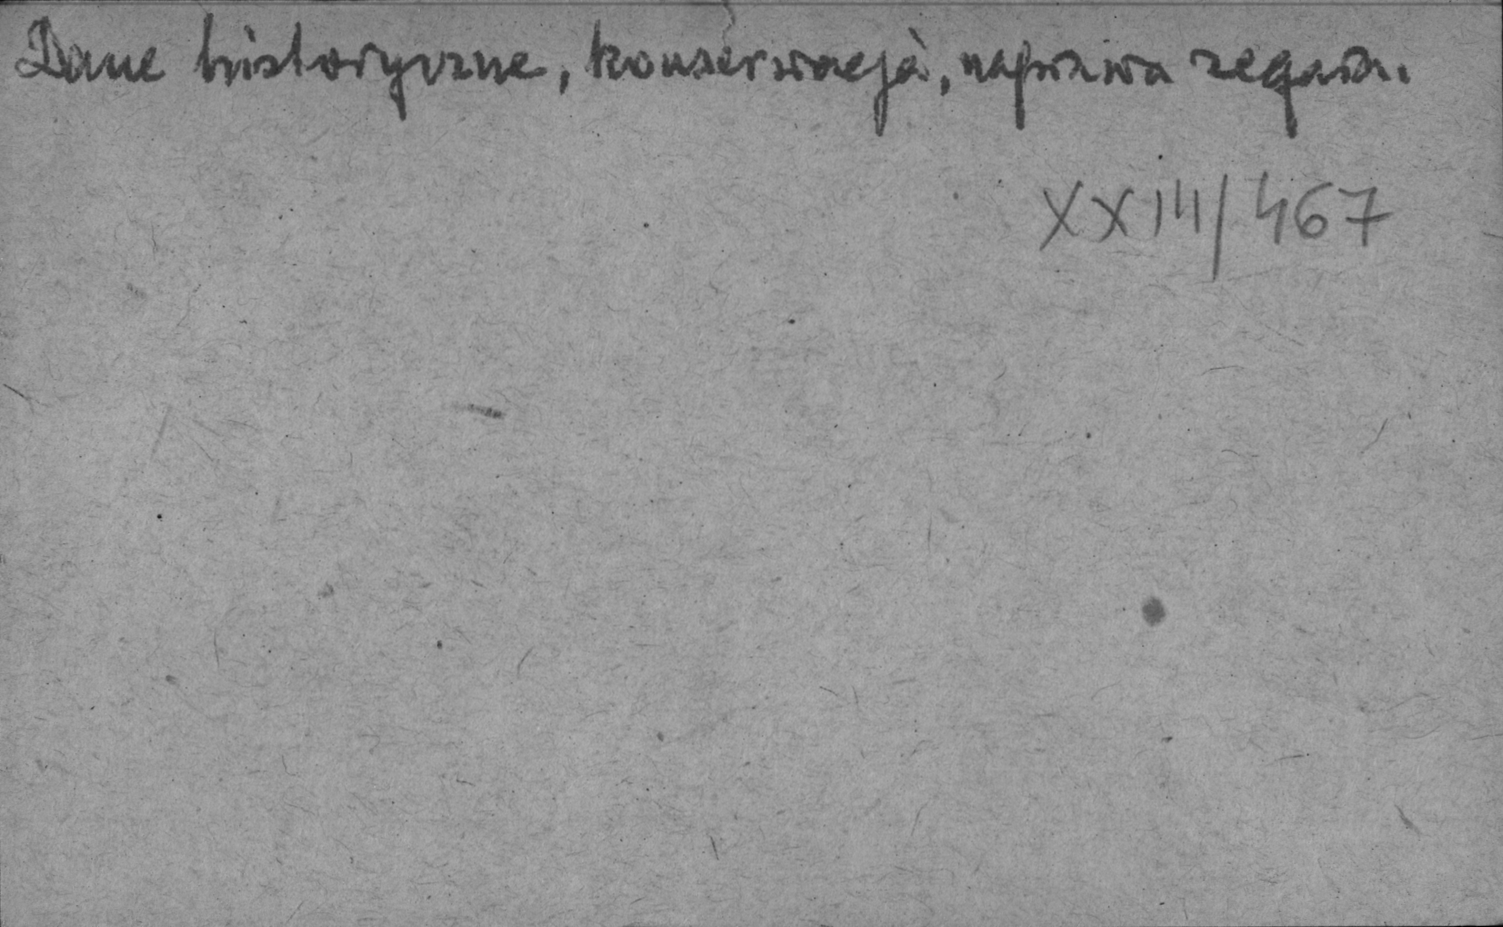 Dane historyczne, konserwacja, naprawa zegara.
XXIII/467